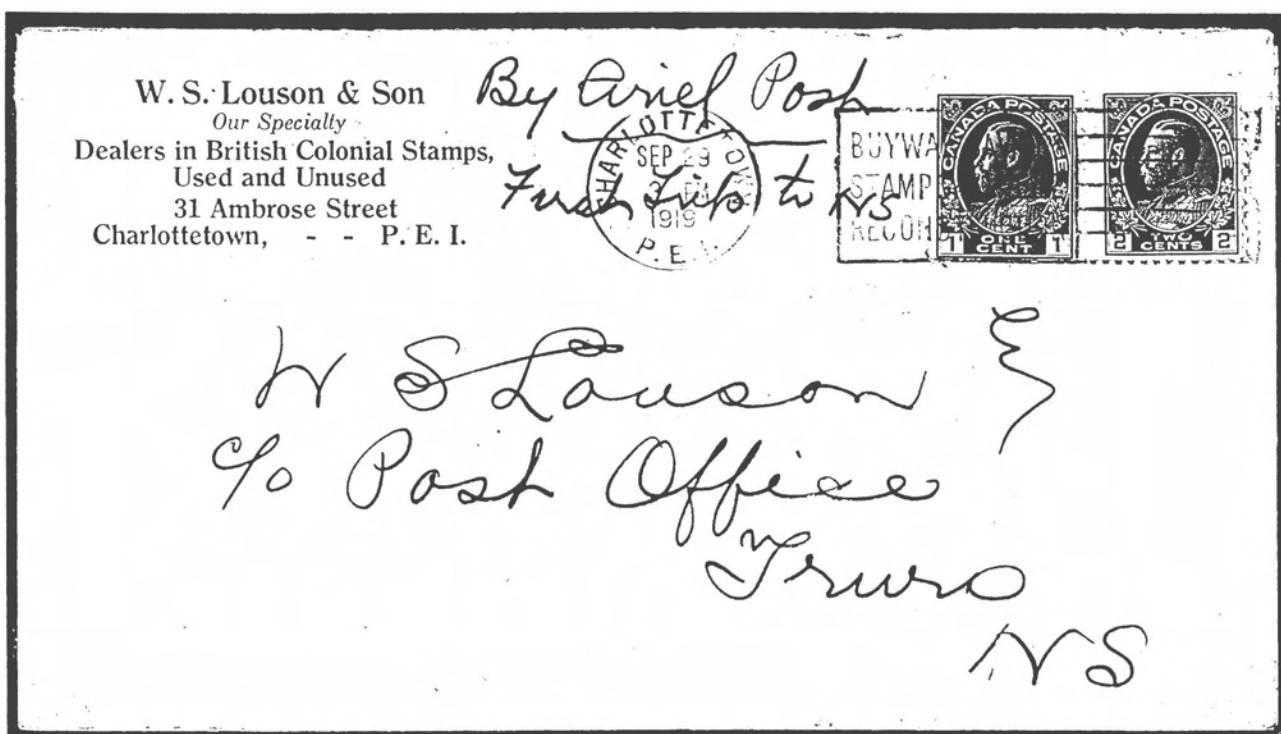 W. S. Louson & Son
Our Specialty
Dealers in British Colonial Stamps,
Used and Unused
31 Ambrose Street
Charlottetown, - - P. E. I.
By Ariel Post
First Trip to NS
CHARLOTTETOWN
SEP 29
PM
1919
P. E. I.
BUY WA
STAMP
RECORD
CANADA POSTAGE
1 ONE CENT 1
CANADA POSTAGE
2 TWO CENTS 2
W S Louson
c/o Post Office
Truro
NS